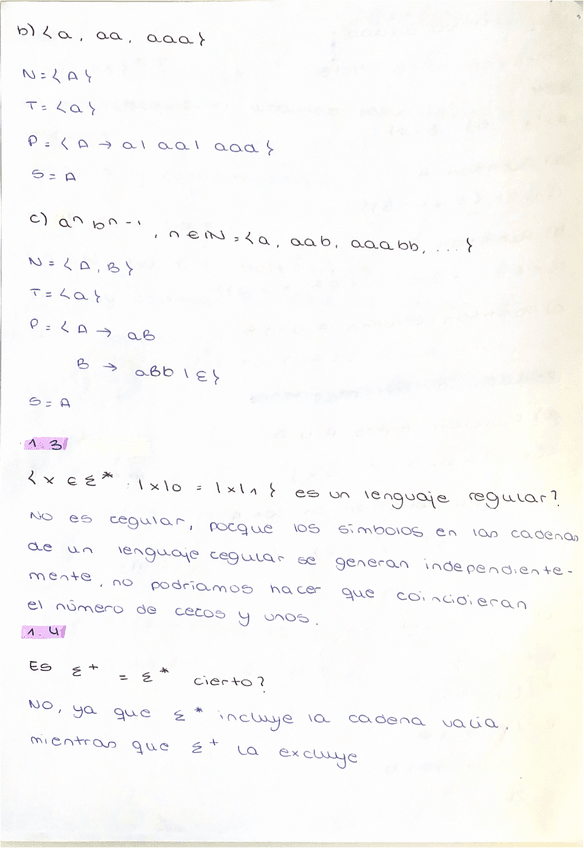 b) { a, aa, aaa }
N = { A }
T = { a }
P = { A → a | aa | aaa }
S = A
c) aⁿ bⁿ⁻¹, n ∈ ℕ = { a, aab, aaabb, ... }
N = { A, B }
T = { a }
P = { A → aB
B → aBb | ε }
S = A
1.3
{ x ∈ Σ* . |x|0 = |x|1 } es un lenguaje regular?
No es regular, porque los símbolos en las cadenas
de un lenguaje regular se generan independiente-
mente, no podríamos hacer que coincidieran
el número de ceros y unos.
1.4
Es Σ⁺ = Σ* cierto?
No, ya que Σ* incluye la cadena vacía,
mientras que Σ⁺ la excluye